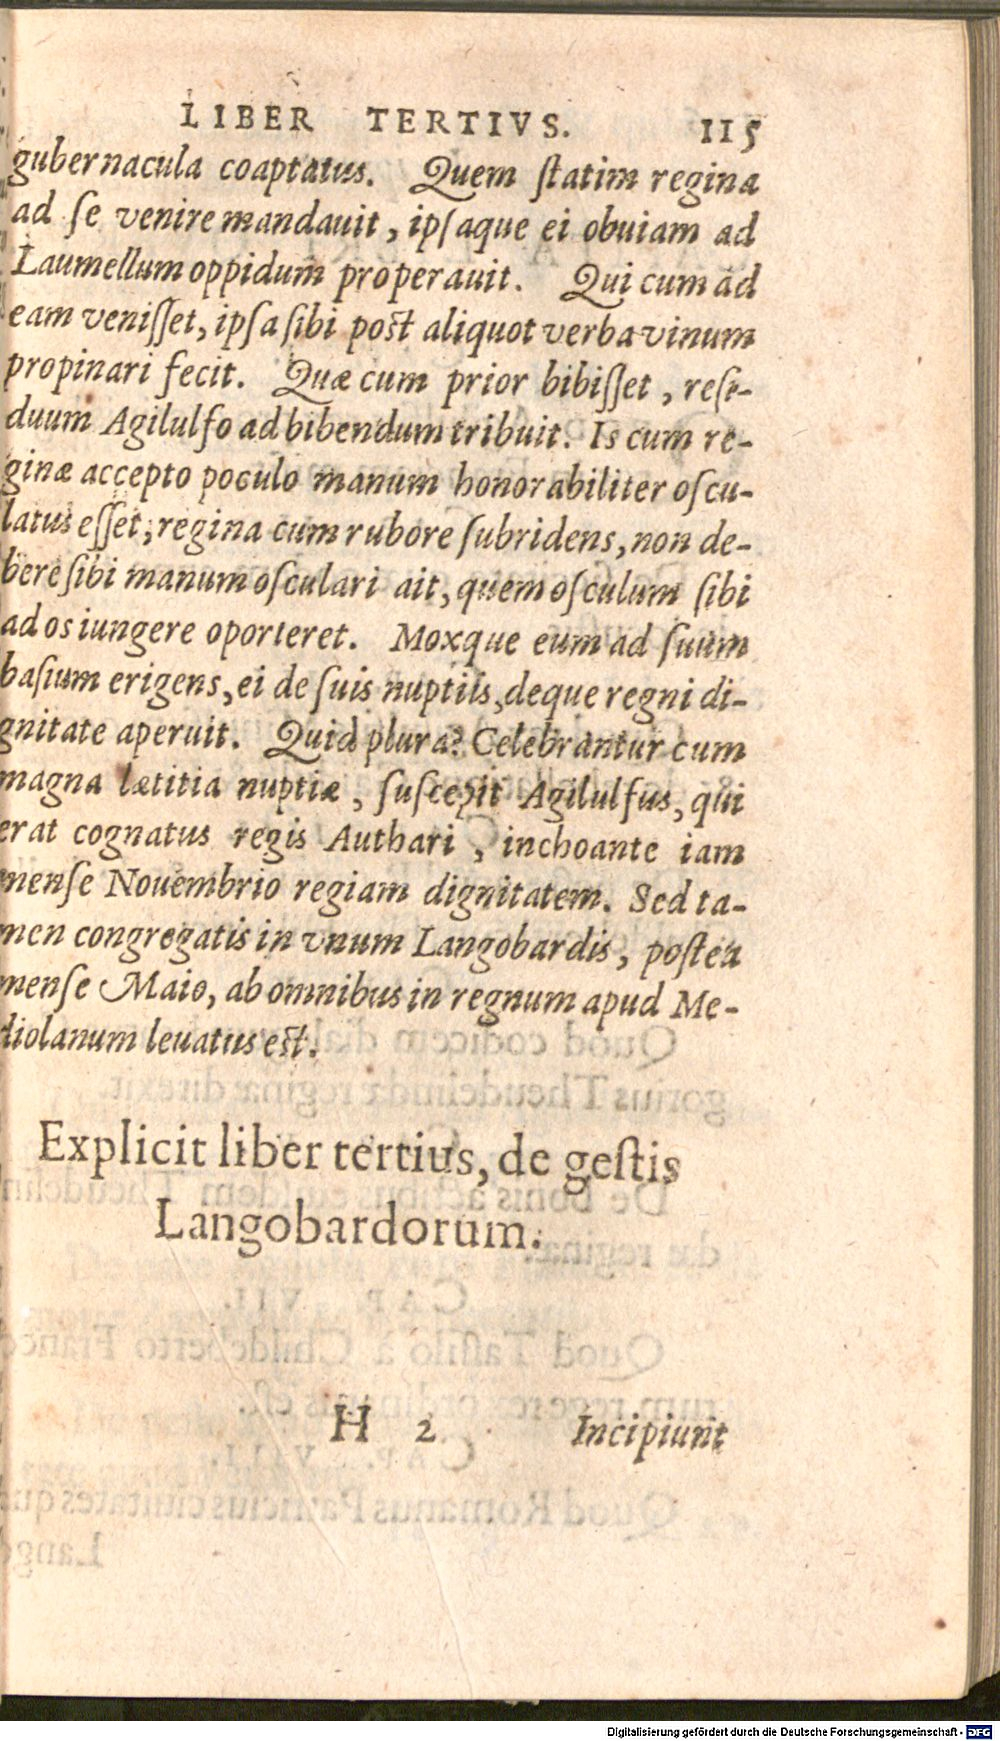 LIBER TERTIVS. 115
gubernacula coaptatus. Quem ſtatim regina
ad ſe venire mandauit, ipſaque ei obuiam ad
Laumellum oppidum properauit. Qui cum ad
eam veniſſet, ipſa ſibi poſt aliquot verba vinum
propinari fecit. Quæ cum prior bibiſſet, reſi-
duum Agilulfo ad bibendum tribuit. Is cum re-
ginæ accepto poculo manum honorabiliter oſcu-
latus eſſet, regina cum rubore ſubridens, non de-
bere ſibi manum oſculari ait, quem oſculum ſibi
ad os iungere oporteret. Moxque eum ad ſuum
baſium erigens, ei de ſuis nuptiis, deque regni di-
gnitate aperuit. Quid plura? Celebrantur cum
magna lætitia nuptiæ, ſuſcepit Agilulfus, qui
erat cognatus regis Authari, inchoante iam
menſe Nouembrio regiam dignitatem. Sed ta-
men congregatis in vnum Langobardis, poſtea
menſe Maio, ab omnibus in regnum apud Me-
diolanum leuatus eſt.
Explicit liber tertius, de geſtis
Langobardorum.
H 2 Incipiunt
Digitalisierung gefördert durch die Deutsche Forschungsgemeinschaft - DFG